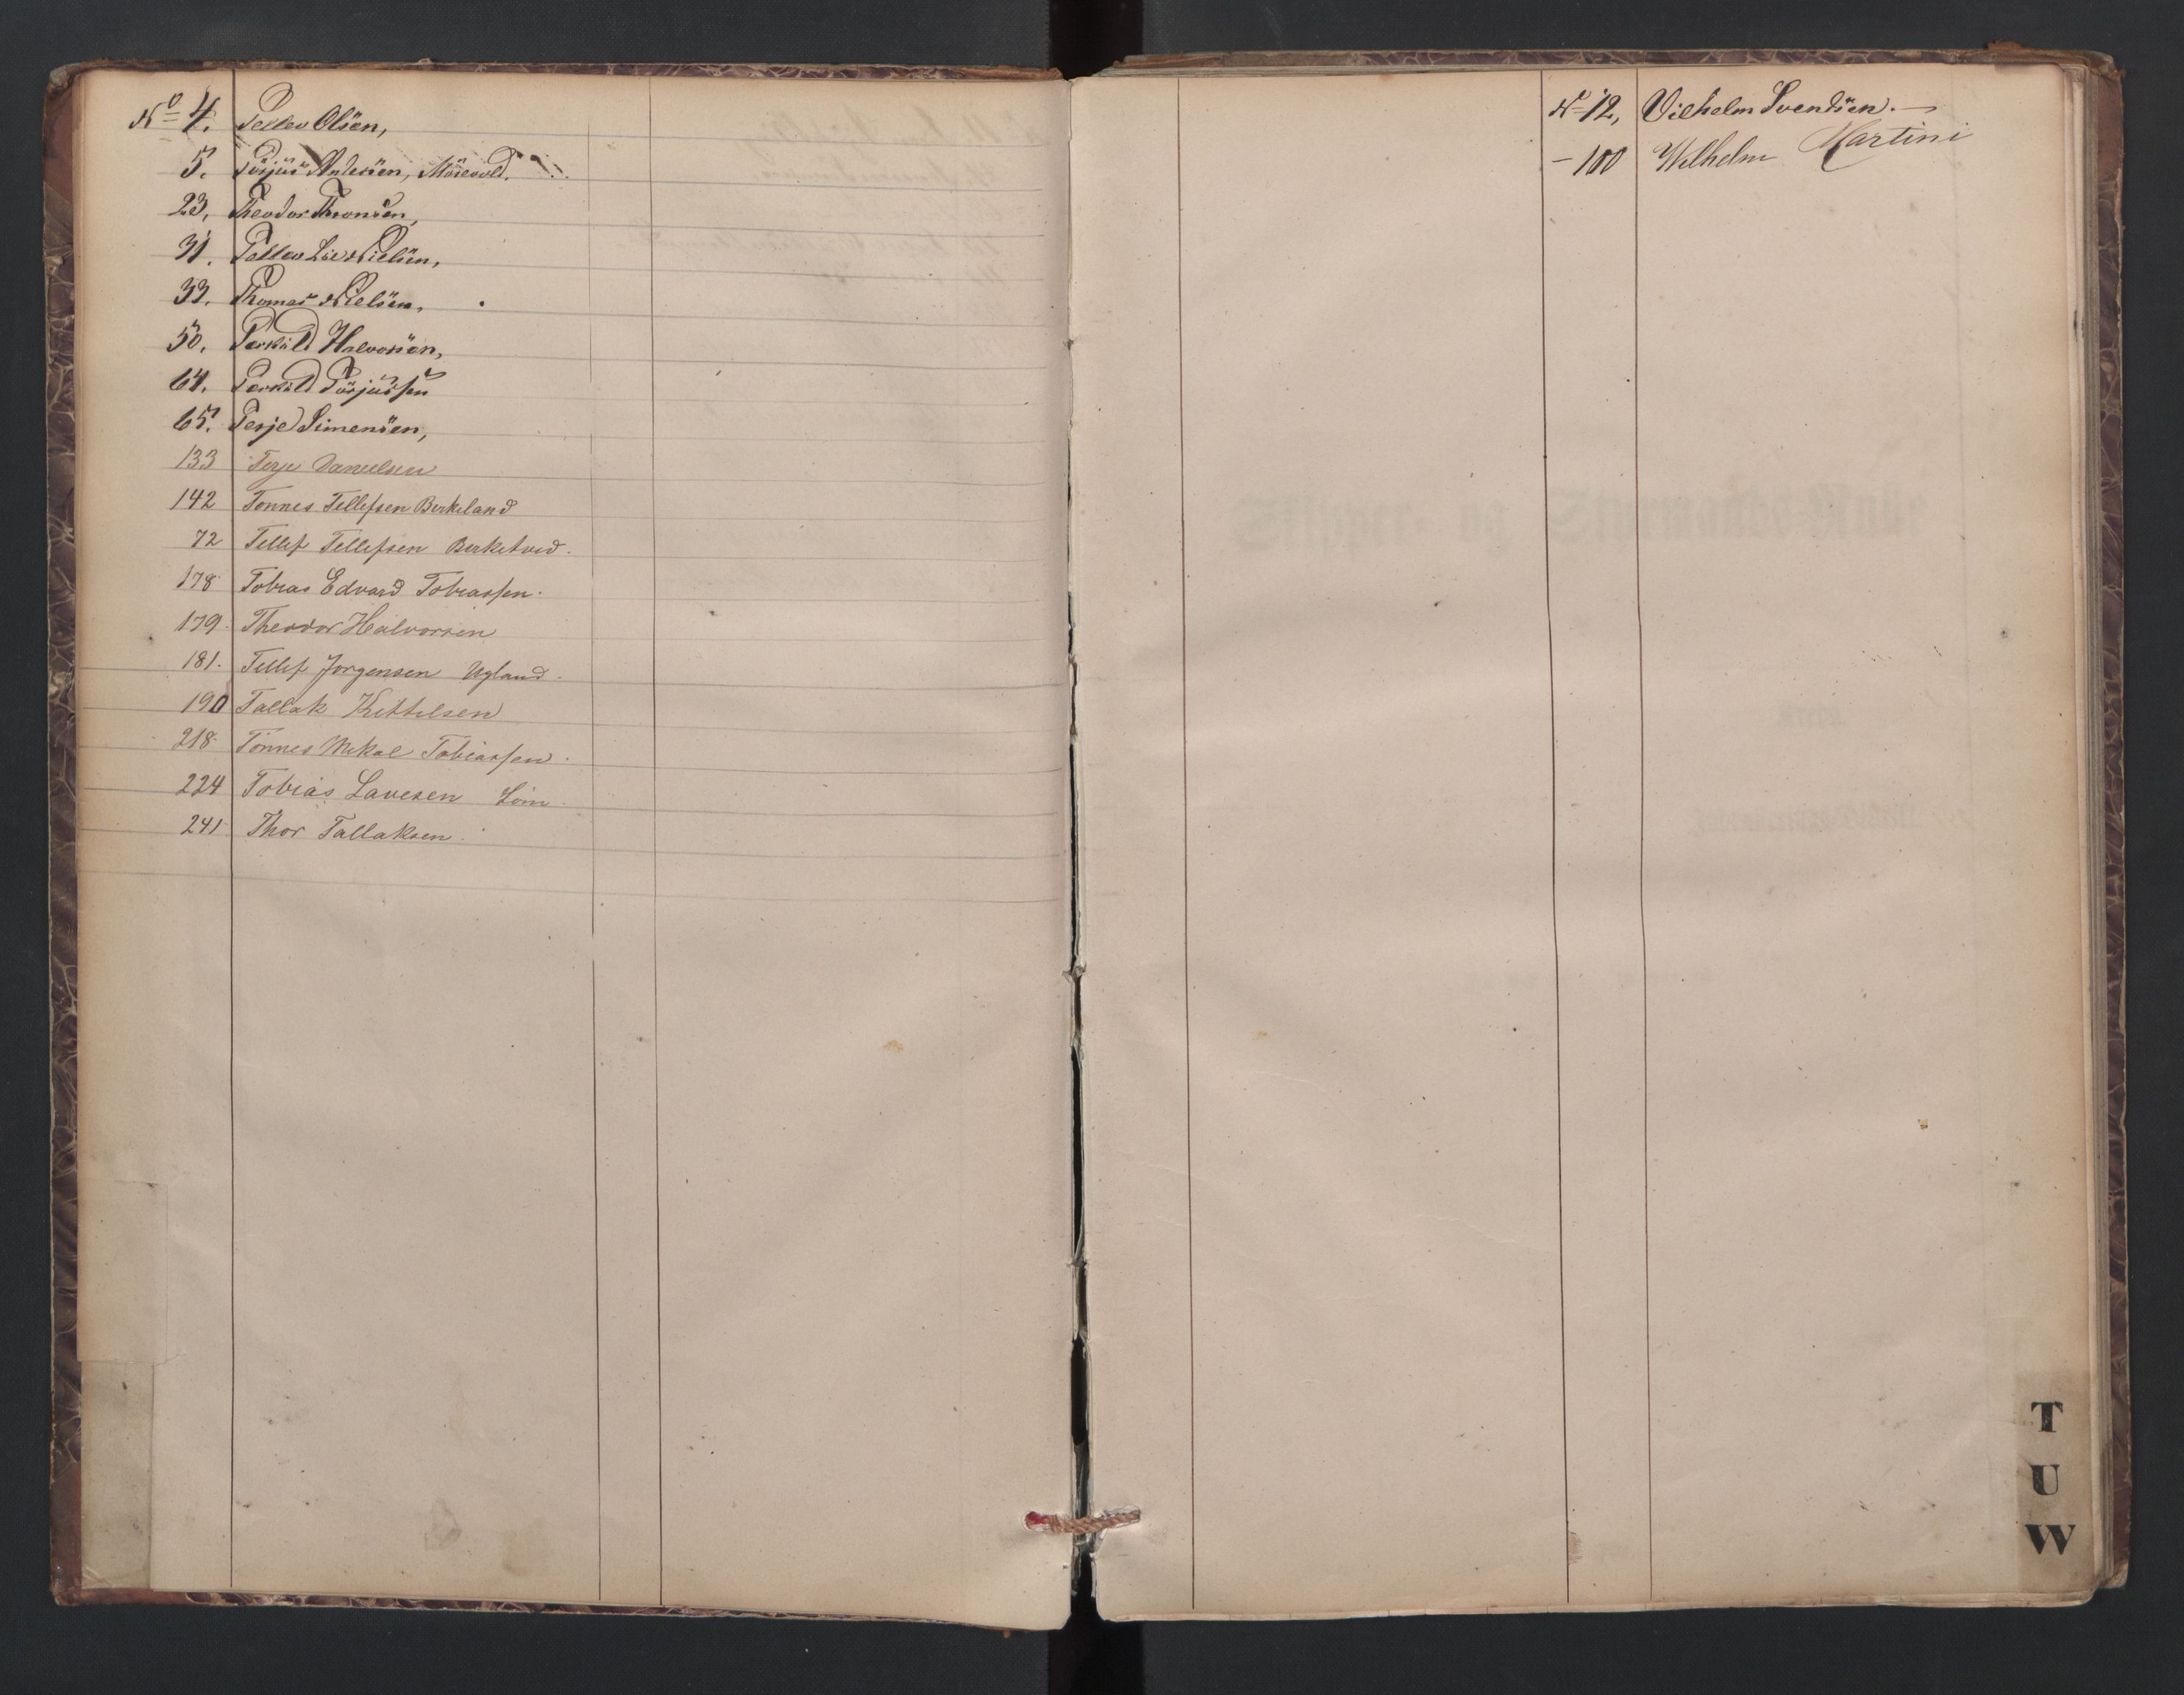 No 4. Tellev Olsen,
5. Tørjus Andersen, Møsevold.
23. Theodor Thomsen,
31. Tellev Nielsen,
33. Thomas Nielsen,
50. Terkild Halvorsen,
64. Terkild Tørjussen
65. Terje Simensen,
133 Terje Danielsen
142 Tønnes Tellefsen Birkeland
72 Tellef Tellefsen Birketved.
178 Tobias Edvard Tobiassen.
179. Theodor Halvorsen
181. Tellef Jørgensen Ugland.
190 Tallak Kittelsen
218 Tønnes Mikal Tobiassen.
224 Tobias Lavesen
241 Thor Tallaksen.
No 12, Vilhelm Svendsen. —
– 100 Wilhelm Martini
T
U
W